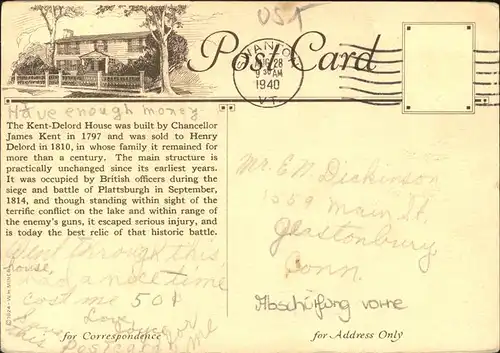 UST
Post Card
SWANTON
AUG 28
9 30 AM
1940
VT.
Have enough money
The Kent-Delord House was built by Chancellor
James Kent in 1797 and was sold to Henry
Delord in 1810, in whose family it remained for
more than a century. The main structure is
practically unchanged since its earliest years.
It was occupied by British officers during the
siege and battle of Plattsburgh in September,
1814, and though standing within sight of the
terrific conflict on the lake and within range of
the enemy's guns, it escaped serious injury, and
is today the best relic of that historic battle.
Went through this
house,
had a nice time
cost me 50¢
Save Love,
this Postcard for me
for Correspondence
© 1924 - W.H.
Mr. E W Dickinson
1059 Main St.
Glastonbury
Conn.
Abschürfung vorne
for Address Only